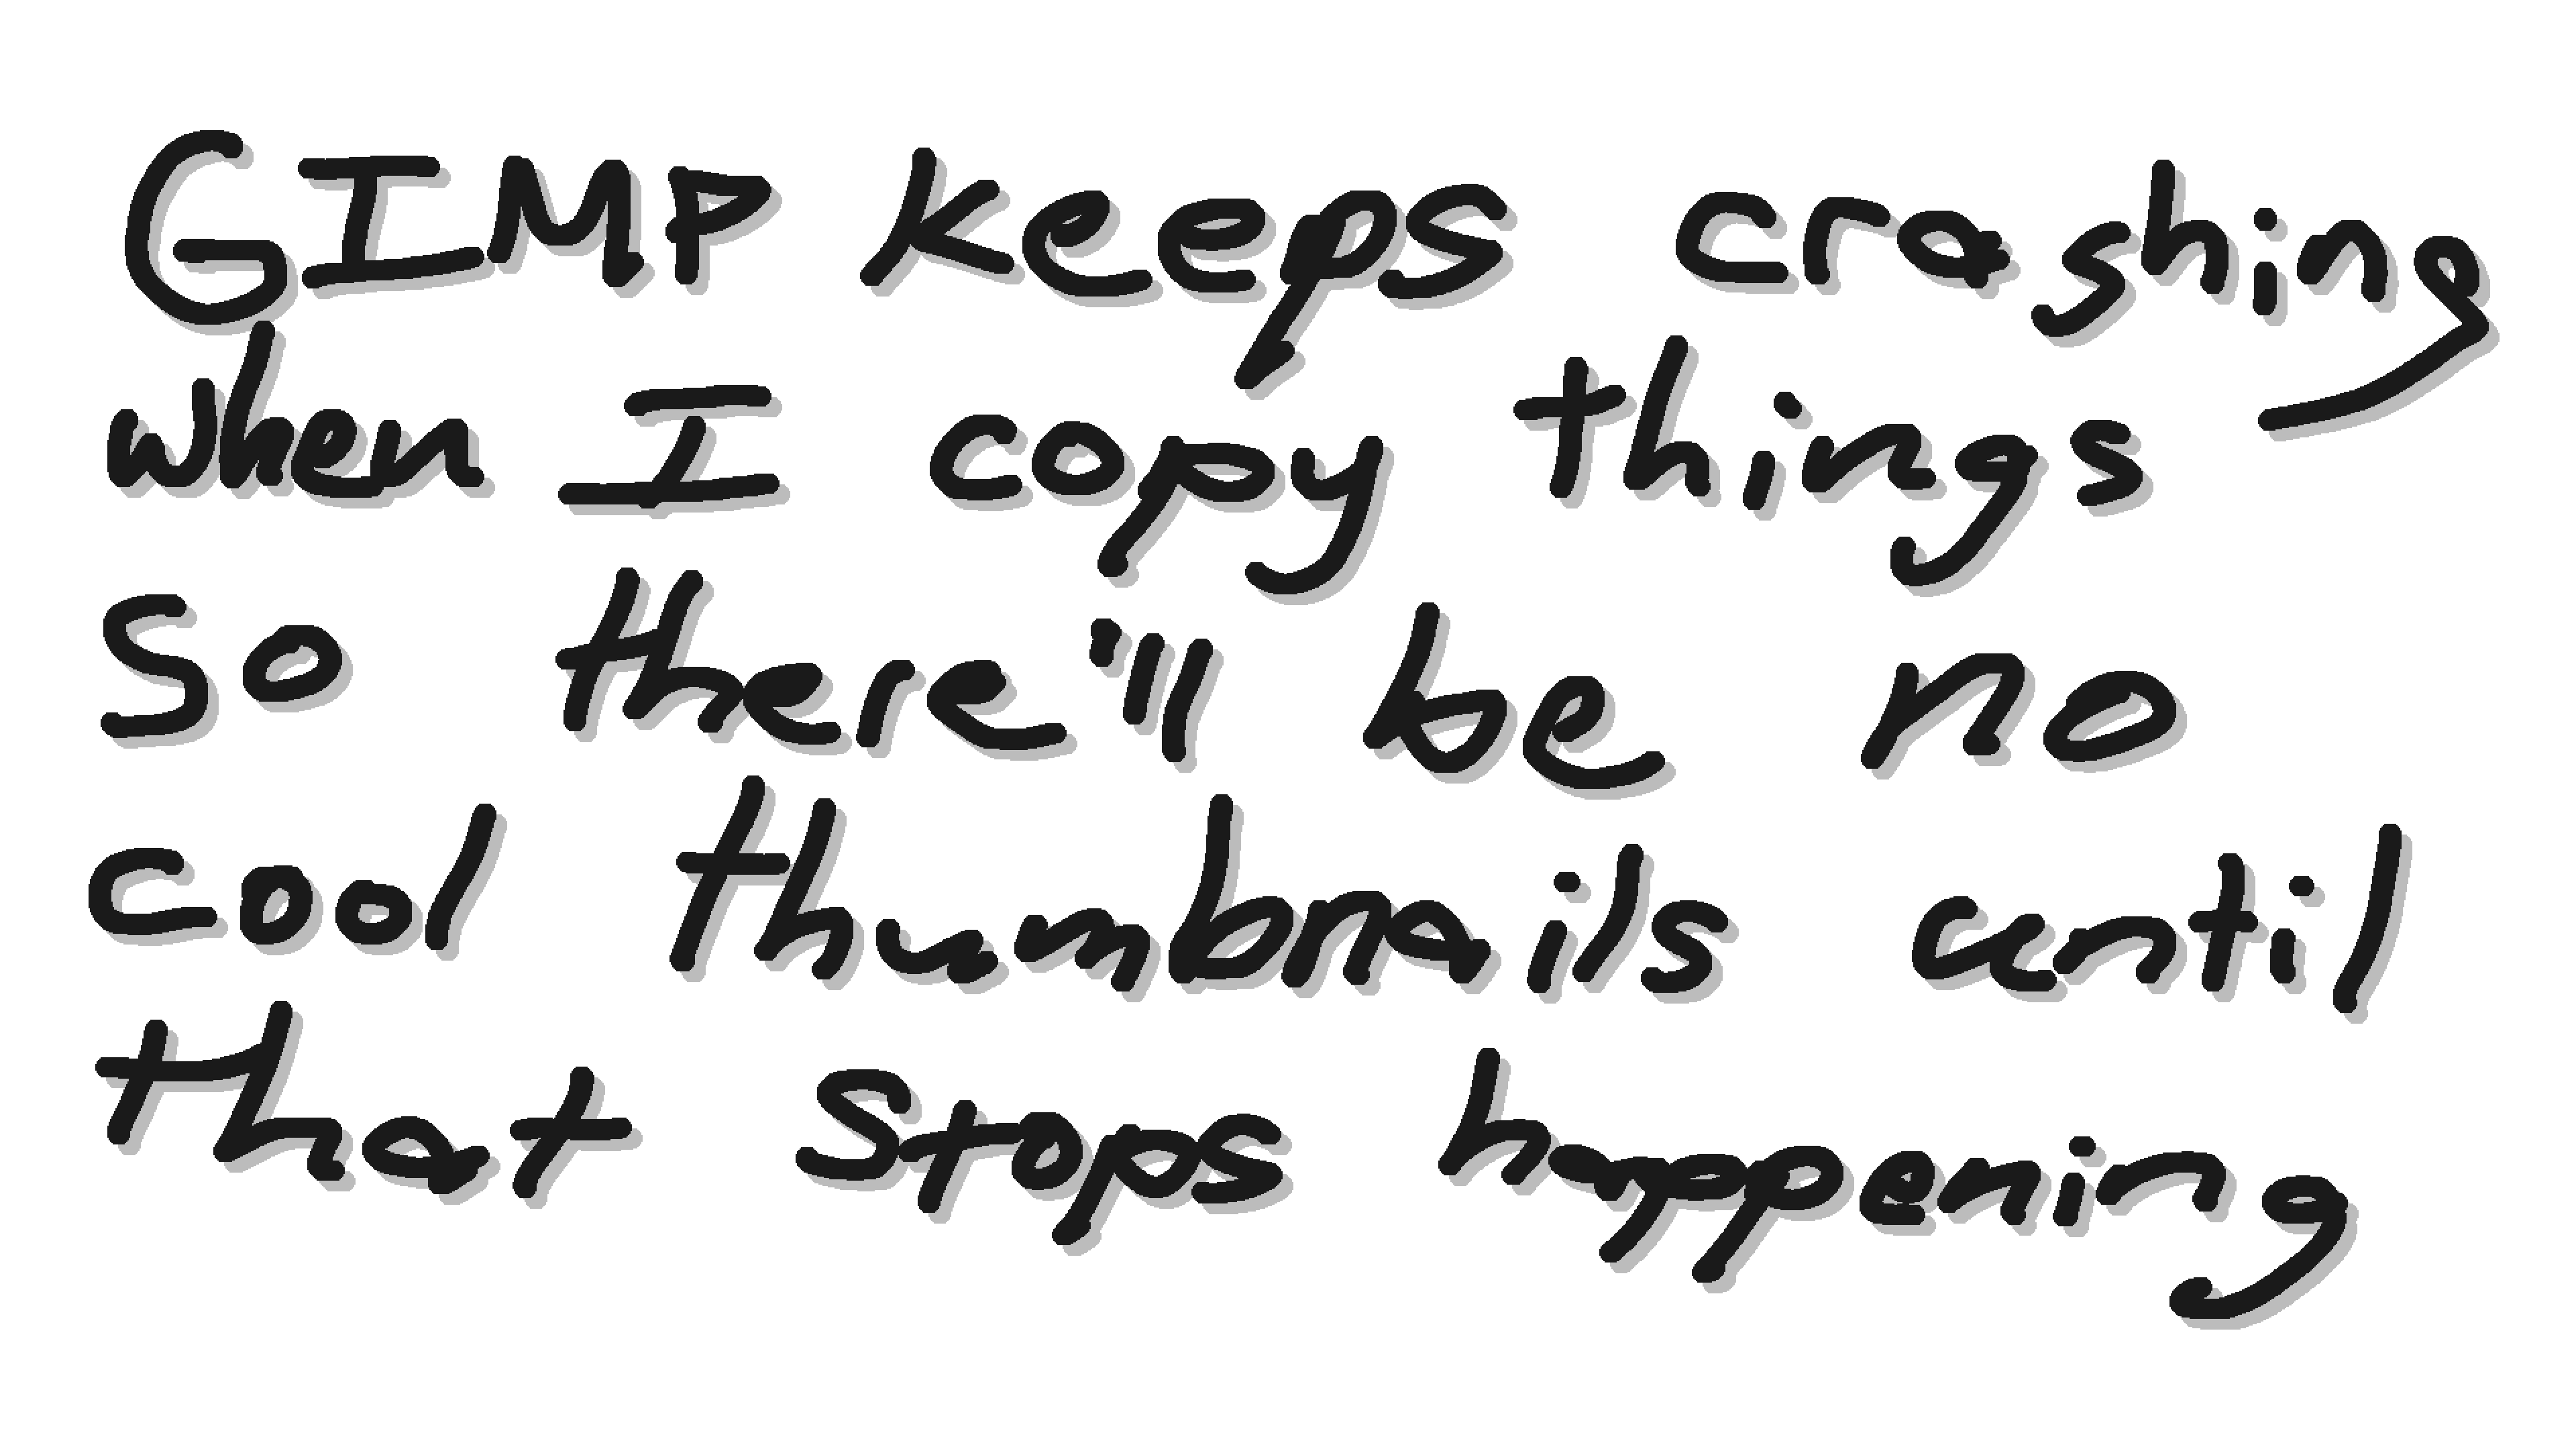 GIMP keeps crashing
when I copy things
So there'll be no
cool thumbnails until
that stops happening